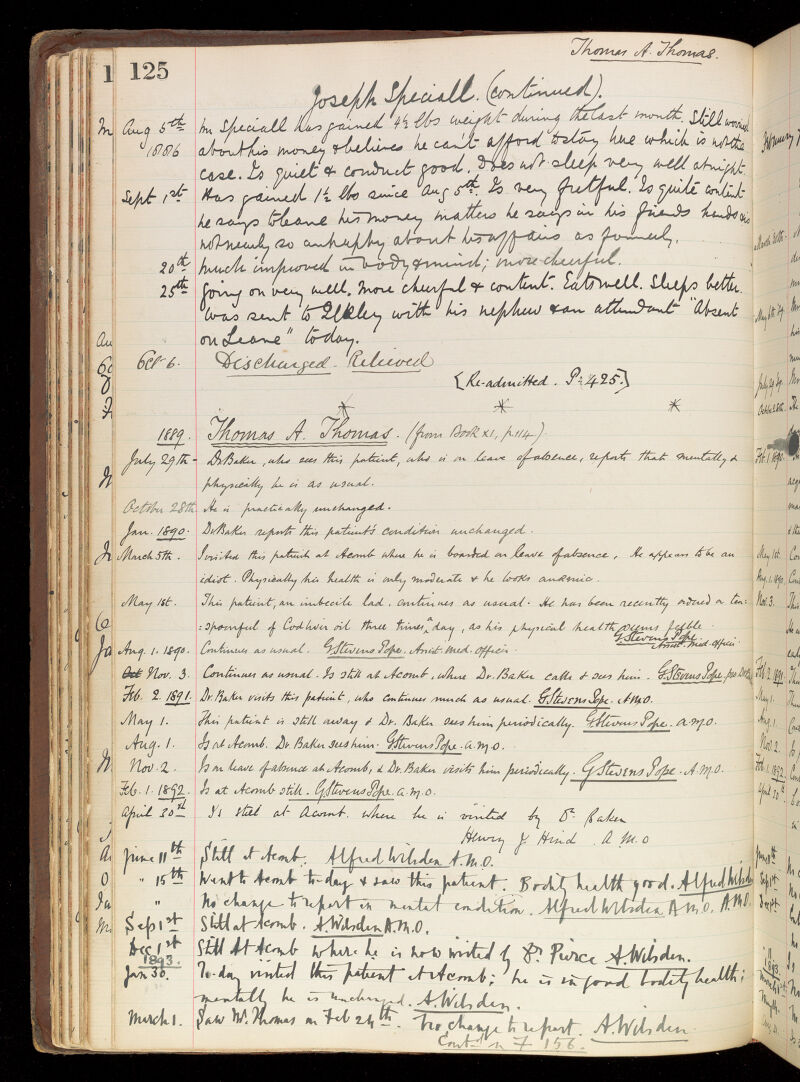 Thomas A. Thomas.
1 125
Joseph Speciall. (continued).
Aug 5th Mr Speciall has gained 4½ lbs weight during the last month. Still worried
1886 about his money & believes he can't afford to stay here which is not the
case. Is quiet & conduct good. Does not sleep very well at night.
Sept 1st Has gained 1½ lbs since Aug 5th. Is very fretful. Is quite content
he says to leave his money matters he says in his friends hands & is
not nearly so unhappy about his affairs as formerly.
20th Much improved in body & mind; more cheerful.
25th Going on very well. More cheerful & content. Eats well. Sleeps better.
Was sent to Ilkley with his nephew & an attendant "Absent
on Leave" today.
Oct 6. Discharged. Relieved
[Re-admitted. P: 425.]
* * *
1889. Thomas A. Thomas. (from Book XI, p. 114)
July 29th - Dr Baker, who sees this patient, who is on leave of absence, reports that mentally &
physically he is as usual.
October 28th He is practically unchanged.
Jan. 1890. Dr Baker reports this patient's condition unchanged.
March 5th. I visited this patient at Acomb where he is boarded on leave of absence. He appears to be an
idiot. Physically his health is only moderate & he looks anæmic.
May 1st. This patient, an imbecile lad, continues as usual. He has been recently ordered a tea=
=spoonful of Codliver oil three times a day, as his physical health seems feeble.
G Stevens Pope Assist. Med. Officer
Aug. 1. 1890. Continues as usual. G Stevens Pope. Assist. Med. Officer.
Oct Nov. 3. Continues as usual. Is still at Acomb, where Dr. Baker calls & sees him. G. Stevens Pope.
Feb. 2. 1891. Dr. Baker visits this patient, who continues much as usual. G Stevens Pope. A.M.O.
May 1. This patient is still away & Dr. Baker sees him periodically. G Stevens Pope. A.M.O.
Aug. 1. Is at Acomb. Dr. Baker sees him. G Stevens Pope. A.M.O.
Nov. 2. Is on leave of absence at Acomb, & Dr. Baker visits him periodically. G Stevens Pope. A.M.O.
Feb. 1. 1892. Is at Acomb still. G Stevens Pope. A.M.O.
April 30th Is still at Acomb. where he is visited by Dr. Baker
Henry J Hind. A.M.O
June 11th Still at Acomb. Alfred Wilsden A.M.O.
" 15th Went to Acomb to-day & saw this patient. Bodily health good. Alfred Wilsden
" No change to report in mental condition. Alfred Wilsden A.M.O. A.M.O.
Sep 1st Still at Acomb. A. Wilsden A.M.O.
Dec 1st Still At Acomb where he is now visited by Dr. Pierce A. Wilsden.
1893.
Jan 30. To-day visited this patient at Acomb; he is in good bodily health;
mentally he is unchanged. A. Wilsden.
March 1. Saw Mr. Thomas on Feb 24th. No change to report. A. Wilsden
Contd in F 156.